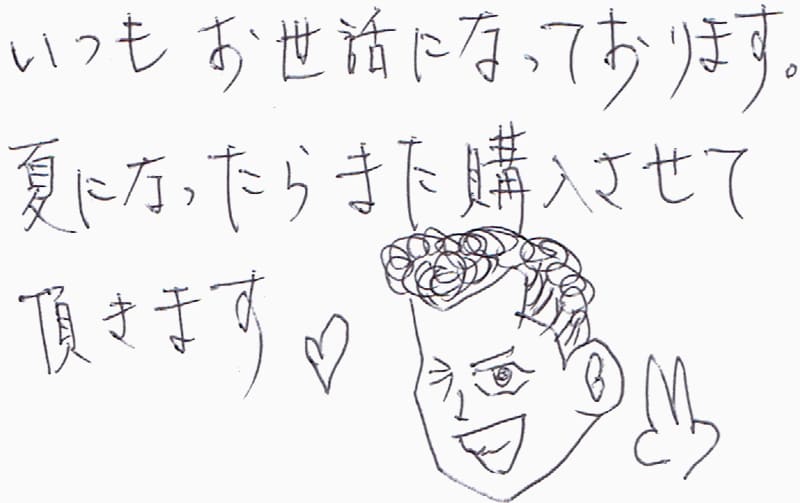 いつもお世話になっております。
夏になったらまた購入させて
頂きます